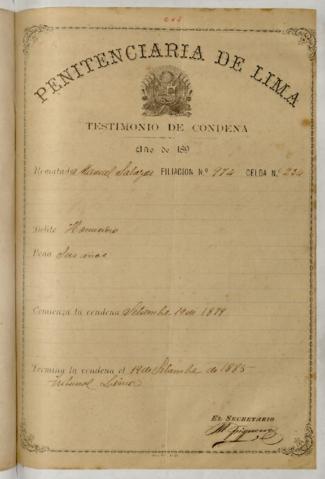 PENITENCIARIA DE LIMA
TESTIMONIO DE CONDENA
Año de 189
Rematado Manuel Salazar FILIACION N.º 974 CELDA N.º 234
Delito Homicidio
Pena Seis años
Comienza la condena Setiembre 19 de 1879
Termina la condena el 19 de Setiembre de 1885
Tribunal Lima
EL SECRETARIO